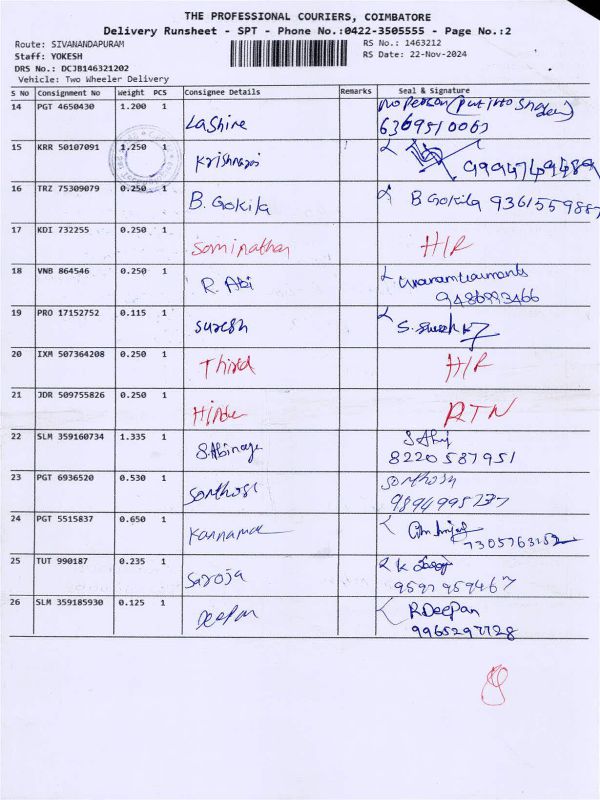 THE PROFESSIONAL COURIERS, COIMBATORE
Delivery Runsheet - SPT - Phone No.:0422-3505555 - Page No.:2
Route: SIVANANDAPURAM
RS No.: 1463212
Staff: YOKESH
RS Date: 22-Nov-2024
DRS No.: DCJB146321202
Vehicle: Two Wheeler Delivery
S No Consignment No Weight PCS Consignee Details Remarks Seal & Signature
14 PGT 4650430 1.200 1 Lashine No Person (Put into
6369510063
15 KRR 50107091 1.250 1
16 TRZ 75309079 0.250 1 B. Gokila B Gokila 9361559887
17 KDI 732255 0.250 1 Sominathan
18 VNB 864546 0.250 1 R. Abi
9486993466
19 PRO 17152752 0.115 1 Suresh S. Suresh
20 IXM 507364208 0.250 1 Third
21 JDR 509755826 0.250 1 Hindu RTN
22 SLM 359160734 1.335 1 S. Abinaya
8220587951
23 PGT 6936520 0.530 1 Santhosh Santhosh
24 PGT 5515837 0.650 1 Kannamal
25 TUT 990187 0.235 1 Saroja
9597959467
26 SLM 359185930 0.125 1 Deepan R Deepan
9965297728